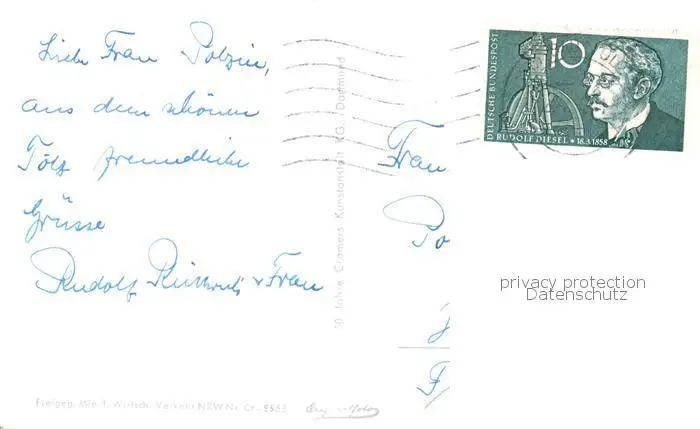 Liebe Frau Polzin,
aus dem schönen
Tölz freundliche
Grüsse
Rudolf + Frau
Frau
Po
F
50 Jahre Cramers Kunstanstalt KG., Dortmund
Freigeg. Min. f. Wirtsch. Verkehr NRW Nr. Cr.
DEUTSCHE BUNDESPOST
10
RUDOLF DIESEL * 18.3.1858
privacy protection
Datenschutz